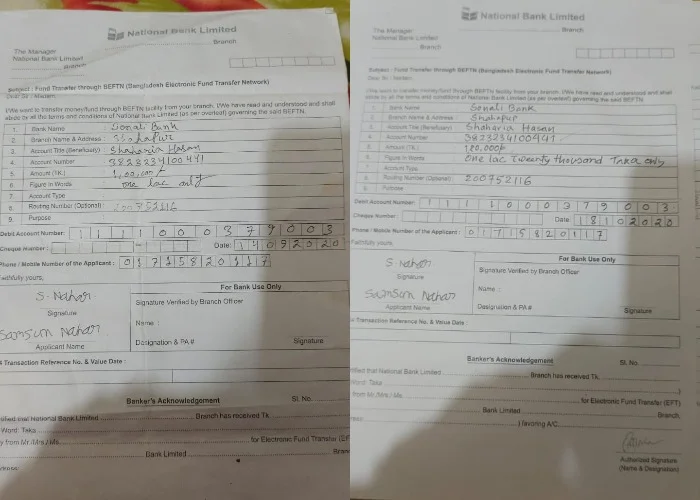 National Bank Limited
Branch
The Manager
National Bank Limited
Branch
Subject : Fund Transfer through BEFTN (Bangladesh Electronic Fund Transfer Network)
Dear Sir / Madam,
I/We want to transfer money/fund through BEFTN facility from your branch. I/We have read and understood and shall
abide by all the terms and conditions of National Bank Limited (as per overleaf) governing the said BEFTN.
1. Bank Name Sonali Bank
2. Branch Name & Address : Shahapur
3. Account Title (Beneficiary) : Shaharia Hasan
4. Account Number 3823234100441
5. Amount (TK.) 1,00,000/-
6. Figure in Words one lac only
7. Account Type
8. Routing Number (Optional) : 200752116
9. Purpose
Debit Account Number: 1 1 1 1 0 0 0 3 7 9 0 0 3
Cheque Number: Date:
Phone / Mobile Number of the Applicant : 0 1 7 1 5 8 2 0 1 1 7
Faithfully yours,
For Bank Use Only
S. Nahar
Signature
Signature Verified by Branch Officer
Name :
Samsun Nahar
Applicant Name
Designation & PA # Signature
Transaction Reference No. & Value Date :
Banker's Acknowledgement Sl. No.
National Bank Limited Branch has received Tk.
Word: Taka
from Mr./Mrs./Ms. for Electronic Fund Transfer
Bank Limited
National Bank Limited
Branch
The Manager
National Bank Limited
Branch
Subject : Fund Transfer through BEFTN (Bangladesh Electronic Fund Transfer Network)
Dear Sir / Madam,
I/We want to transfer money/fund through BEFTN facility from your branch. I/We have read and understood and shall
abide by all the terms and conditions of National Bank Limited (as per overleaf) governing the said BEFTN.
Bank Name Sonali Bank
Branch Name & Address : Shahapur
Account Title (Beneficiary) : Shaharia Hasan
Account Number 3823234100441
Amount (TK.) 120,000/-
Figure in Words one lac Twenty thousand Taka only
Account Type
Routing Number (Optional) 200752116
Purpose
Debit Account Number: 1 1 1 1 0 0 0 3 7 9 0 0 3
Cheque Number: Date 1 8 1 0 2 0 2 0
Phone / Mobile Number of the Applicant : 0 1 7 1 5 8 2 0 1 1 7
Faithfully yours,
For Bank Use Only
S. Nahar
Signature
Signature Verified by Branch Officer
Name :
Samsun Nahar
Applicant Name
Designation & PA # Signature
Transaction Reference No. & Value Date :
Banker's Acknowledgement Sl. No.
that National Bank Limited Branch has received Tk.
Word: Taka
from Mr./Mrs./Ms. for Electronic Fund Transfer (EFT)
Bank Limited Branch
favoring A/C
Authorized Signature
(Name & Designation)